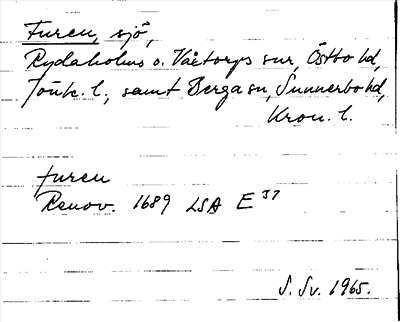 Furen, sjö,
Rydaholms o. Våctorps snr, Östbo hd,
Jönk. l., samt Berga sn, Sunnerbo hd,
Kron. l.
furen
Renov. 1689 LSA E 37
S. Sv. 1965.